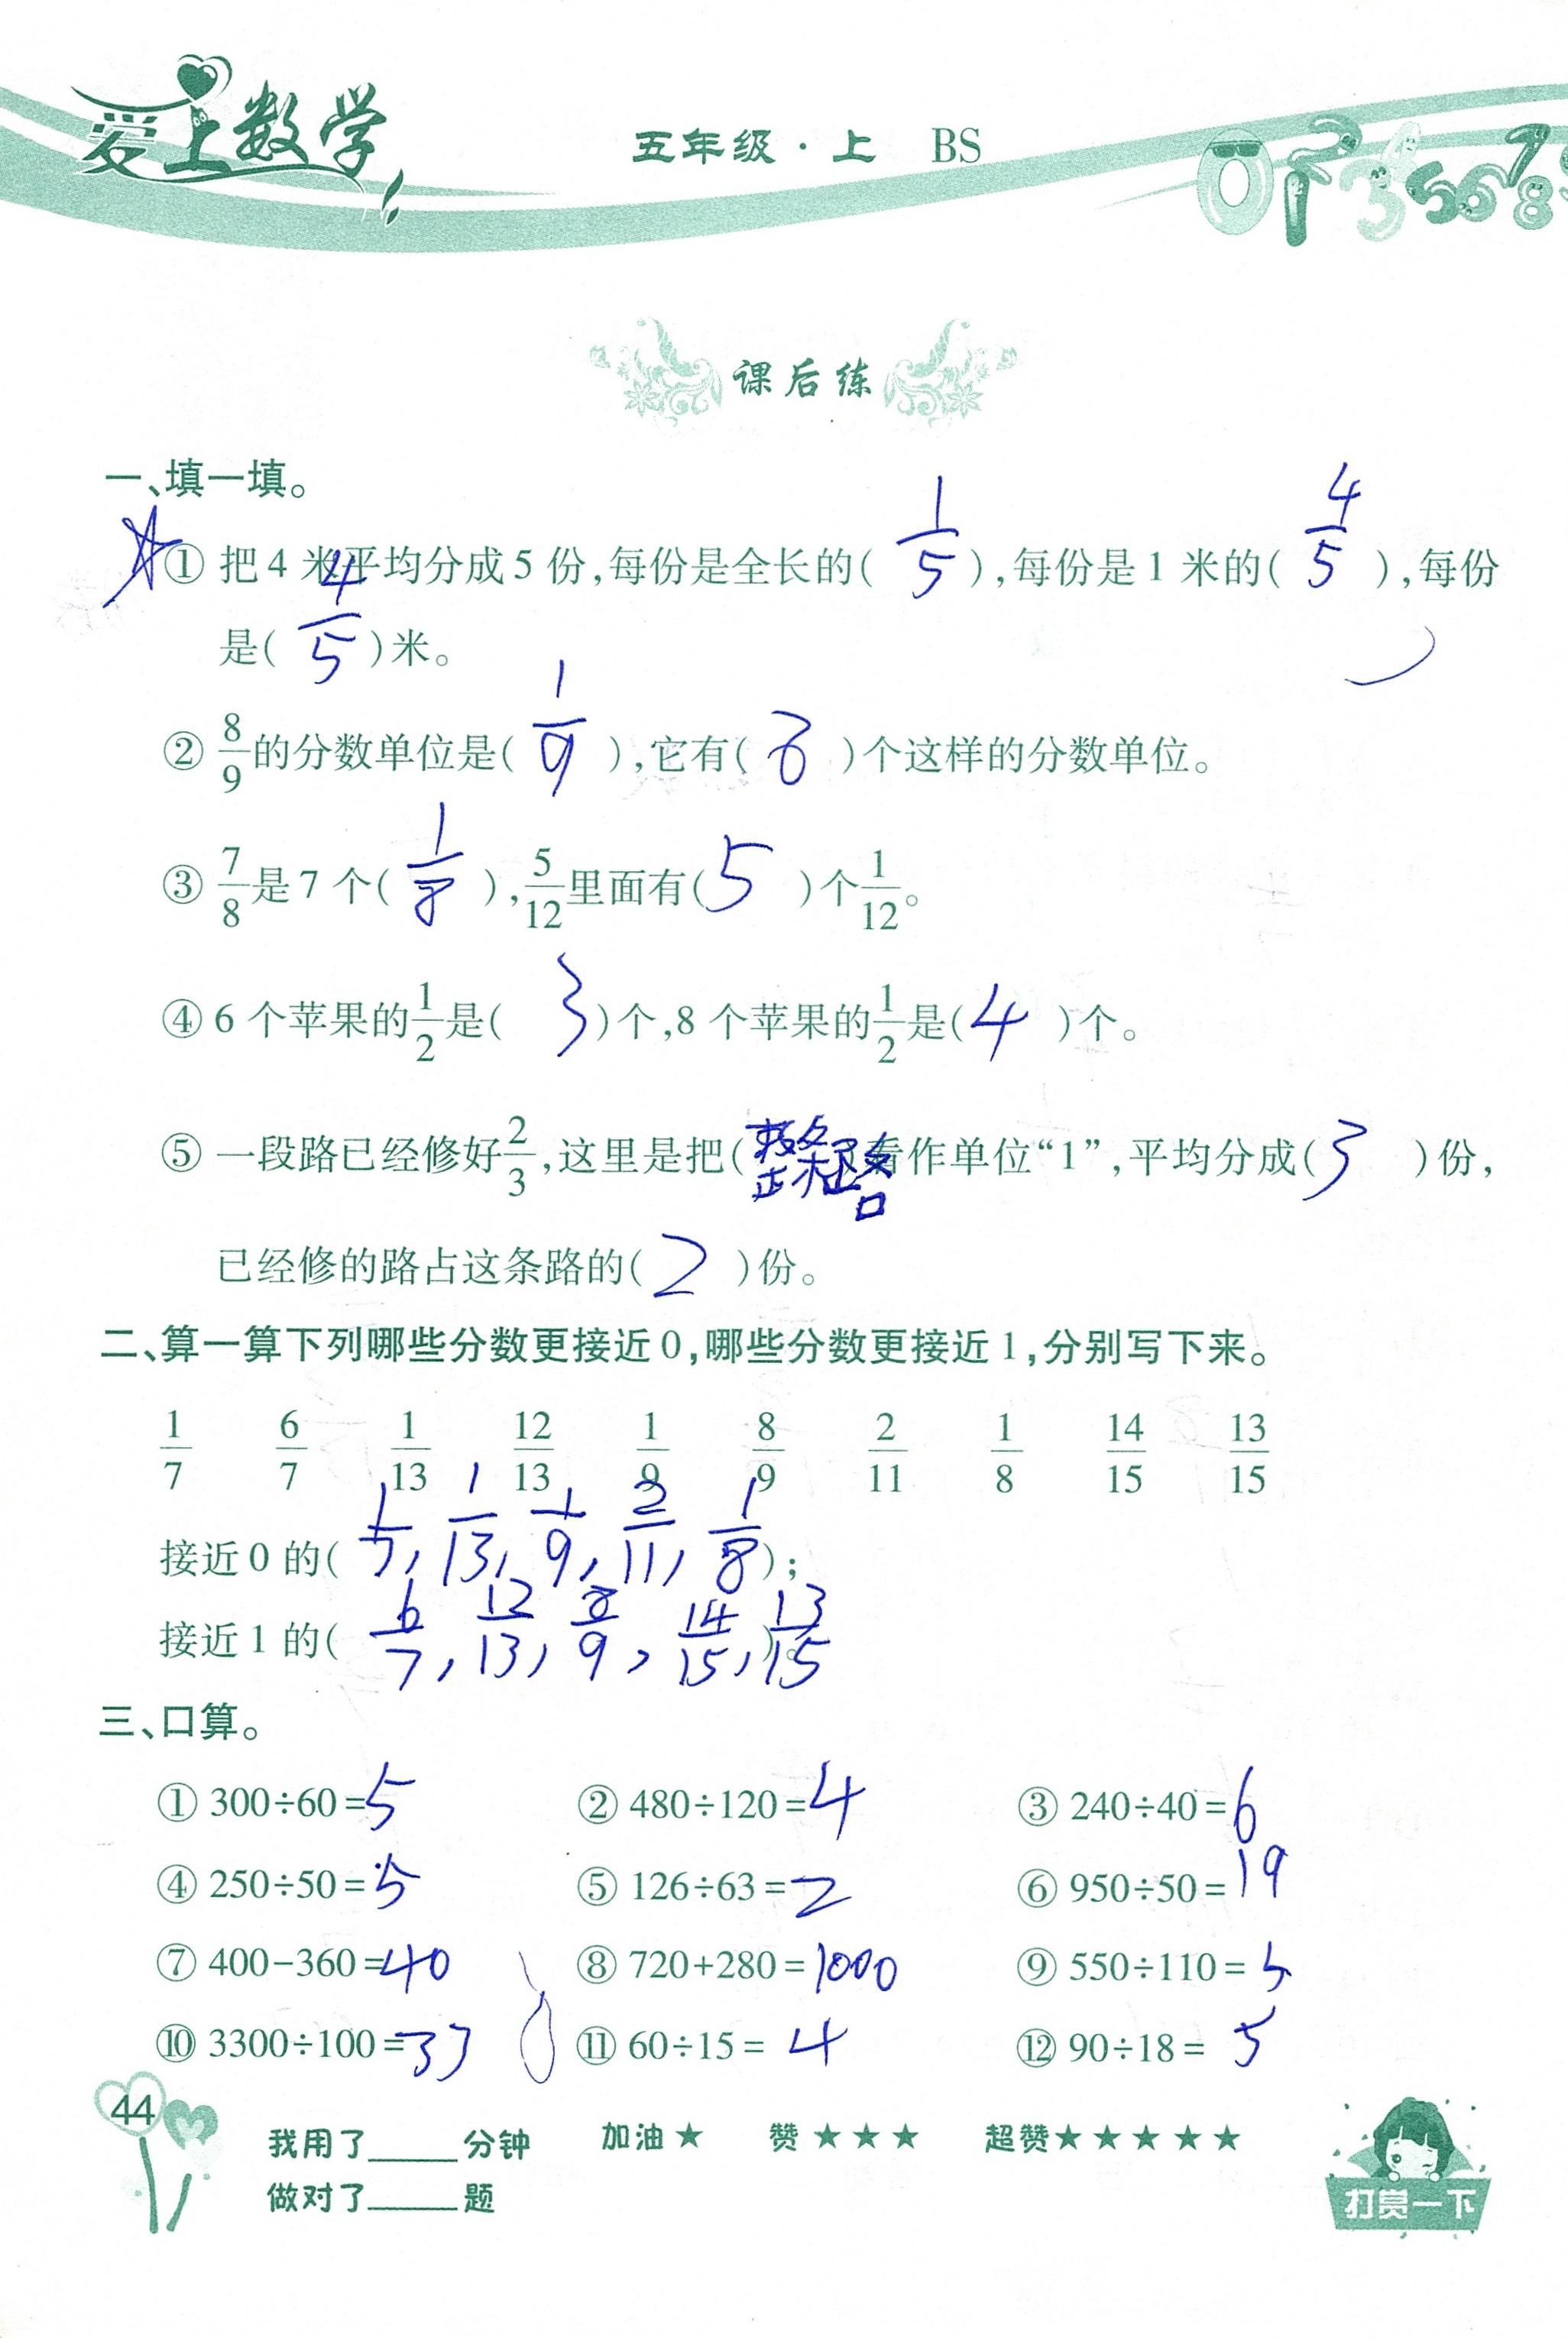 爱上数学
五年级·上 BS
课后练
一、填一填。
☆① 把4米平均分成5份,每份是全长的( 1/5 ),每份是1米的( 4/5 ),每份
是( 4/5 )米。
② 8/9的分数单位是( 1/9 ),它有( 8 )个这样的分数单位。
③ 7/8是7个( 1/8 ),5/12里面有( 5 )个1/12。
④ 6个苹果的1/2是( 3 )个,8个苹果的1/2是( 4 )个。
⑤ 一段路已经修好2/3,这里是把(整条路)看作单位“1”,平均分成( 3 )份,
已经修的路占这条路的( 2 )份。
二、算一算下列哪些分数更接近0,哪些分数更接近1,分别写下来。
1/7 6/7 1/13 12/13 1/9 8/9 2/11 1/8 14/15 13/15
接近0的( 1/7, 1/13, 1/9, 2/11, 1/8 );
接近1的( 6/7, 12/13, 8/9, 14/15, 13/15 )。
三、口算。
① 300÷60=5 ② 480÷120=4 ③ 240÷40=6
④ 250÷50=5 ⑤ 126÷63=2 ⑥ 950÷50=19
⑦ 400-360=40 ⑧ 720+280=1000 ⑨ 550÷110=5
⑩ 3300÷100=33 ⑪ 60÷15=4 ⑫ 90÷18=5
44
我用了____分钟 加油★ 赞★★★ 超赞★★★★★
做对了____题
打赏一下